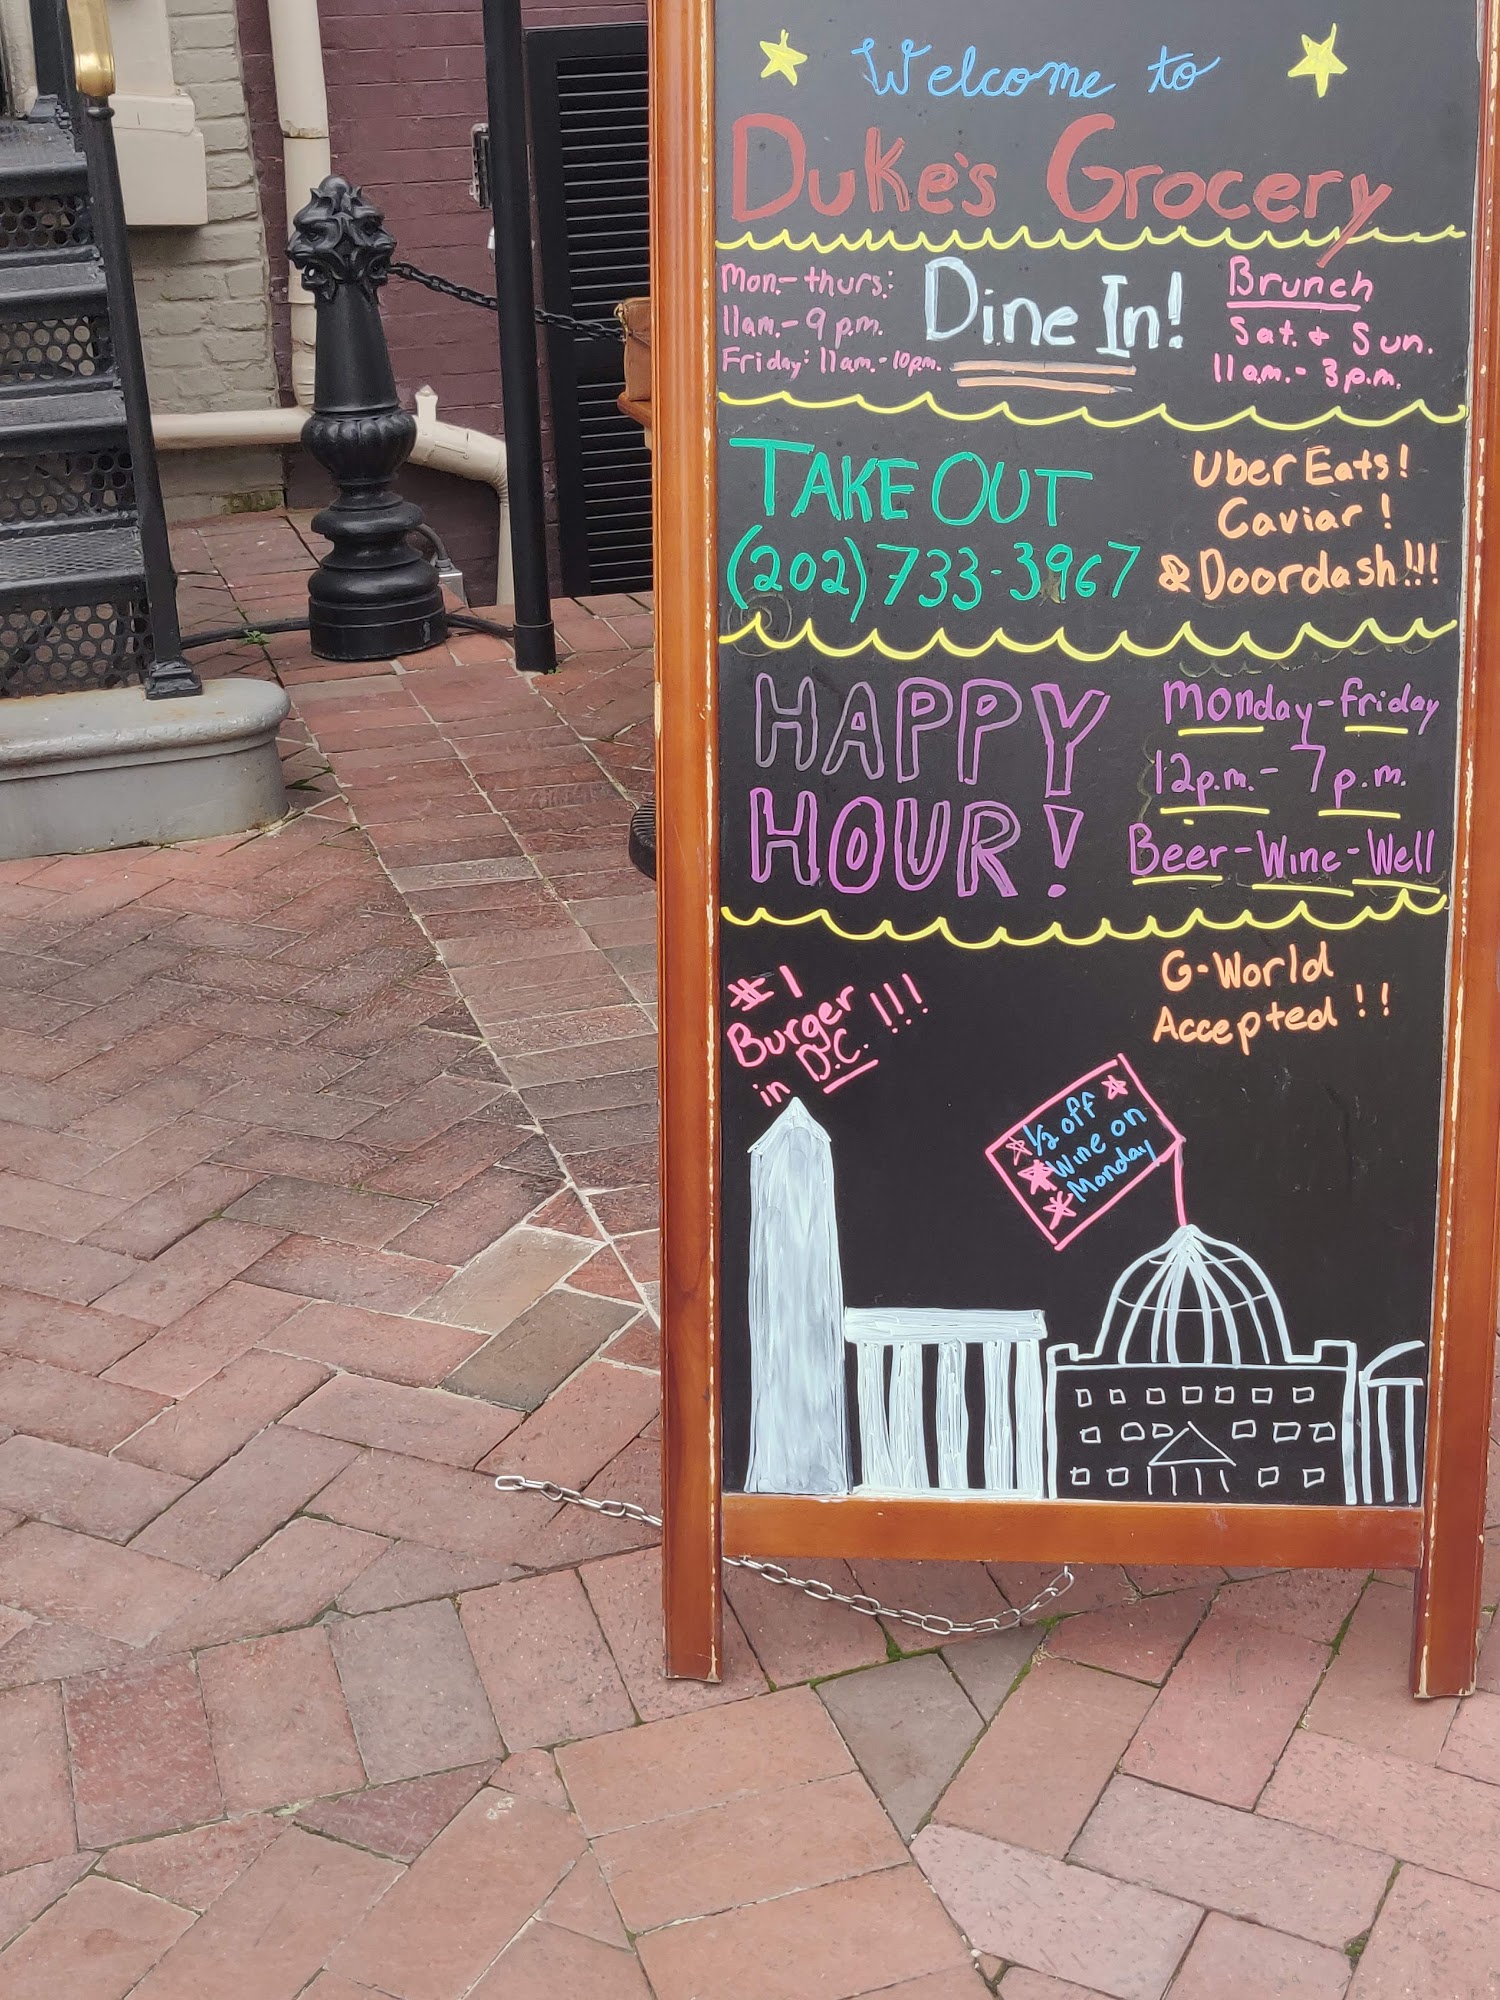 Welcome to
Duke's Grocery
Mon.- thurs:
11am.- 9 p.m.
Friday: 11am.- 10p.m.
Dine In!
Brunch
Sat. + Sun.
11 a.m.- 3 p.m.
TAKE OUT
(202) 733-3967
Uber Eats!
Caviar!
& Doordash!!!
HAPPY
HOUR!
Monday-Friday
12p.m.- 7 p.m.
Beer-Wine-Well
#1
Burger
in D.C. !!!
G-World
Accepted!!
1/2 off
Wine on
Monday